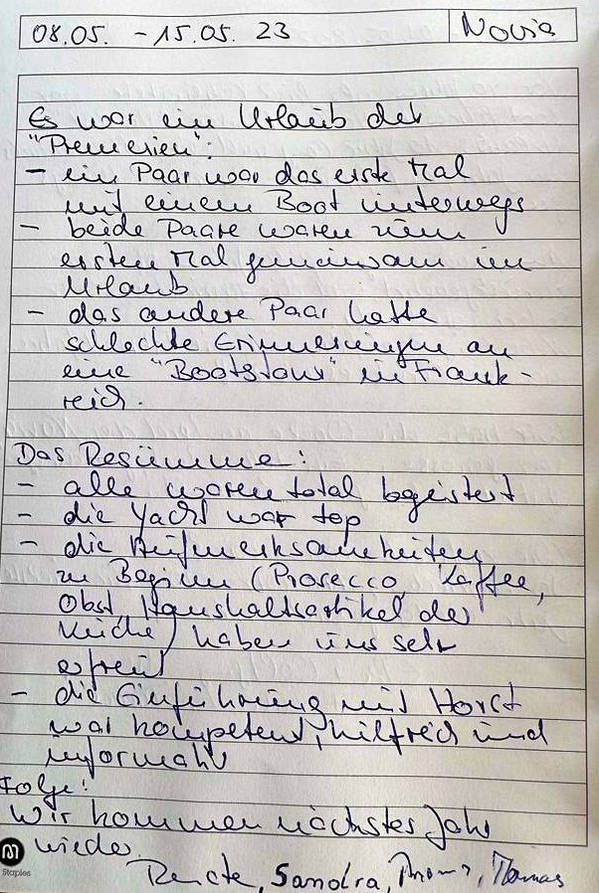 08.05. - 15.05. 23 Novia
Es war ein Urlaub der
"Premieren":
- ein Paar war das erste Mal
mit einem Boot unterwegs
- beide Paare waren zum
ersten Mal gemeinsam im
Urlaub
- das andere Paar hatte
schlechte Erinnerungen an
eine "Bootstour" in Frank-
reich.
Das Resümme:
- alle waren total begeistert
- die Yacht war top
- die Aufmerksamkeiten
zu Beginn (Prosecco, Kaffee,
Obst, Haushaltsartikel der
Küche) haben uns sehr
erfreut
- die Einführung mit Horst
war kompetent, hilfreich und
informativ
Folge:
Wir kommen nächstes Jahr
wieder
Renate, Sandra, Thomas
Staples